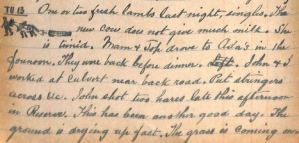 TU 13 One or two fresh lambs last night, singles. The
new cow does not give much milk. She
is timid. Mam & Top drove to Ada's in the
forenoon. They were back before dinner. Left. John & I
worked at culvert near back road. Put stringers
across &c. John shot two hares late this afternoon
in Reserve. This has been another good day. The
ground is drying up fast. The grass is coming on